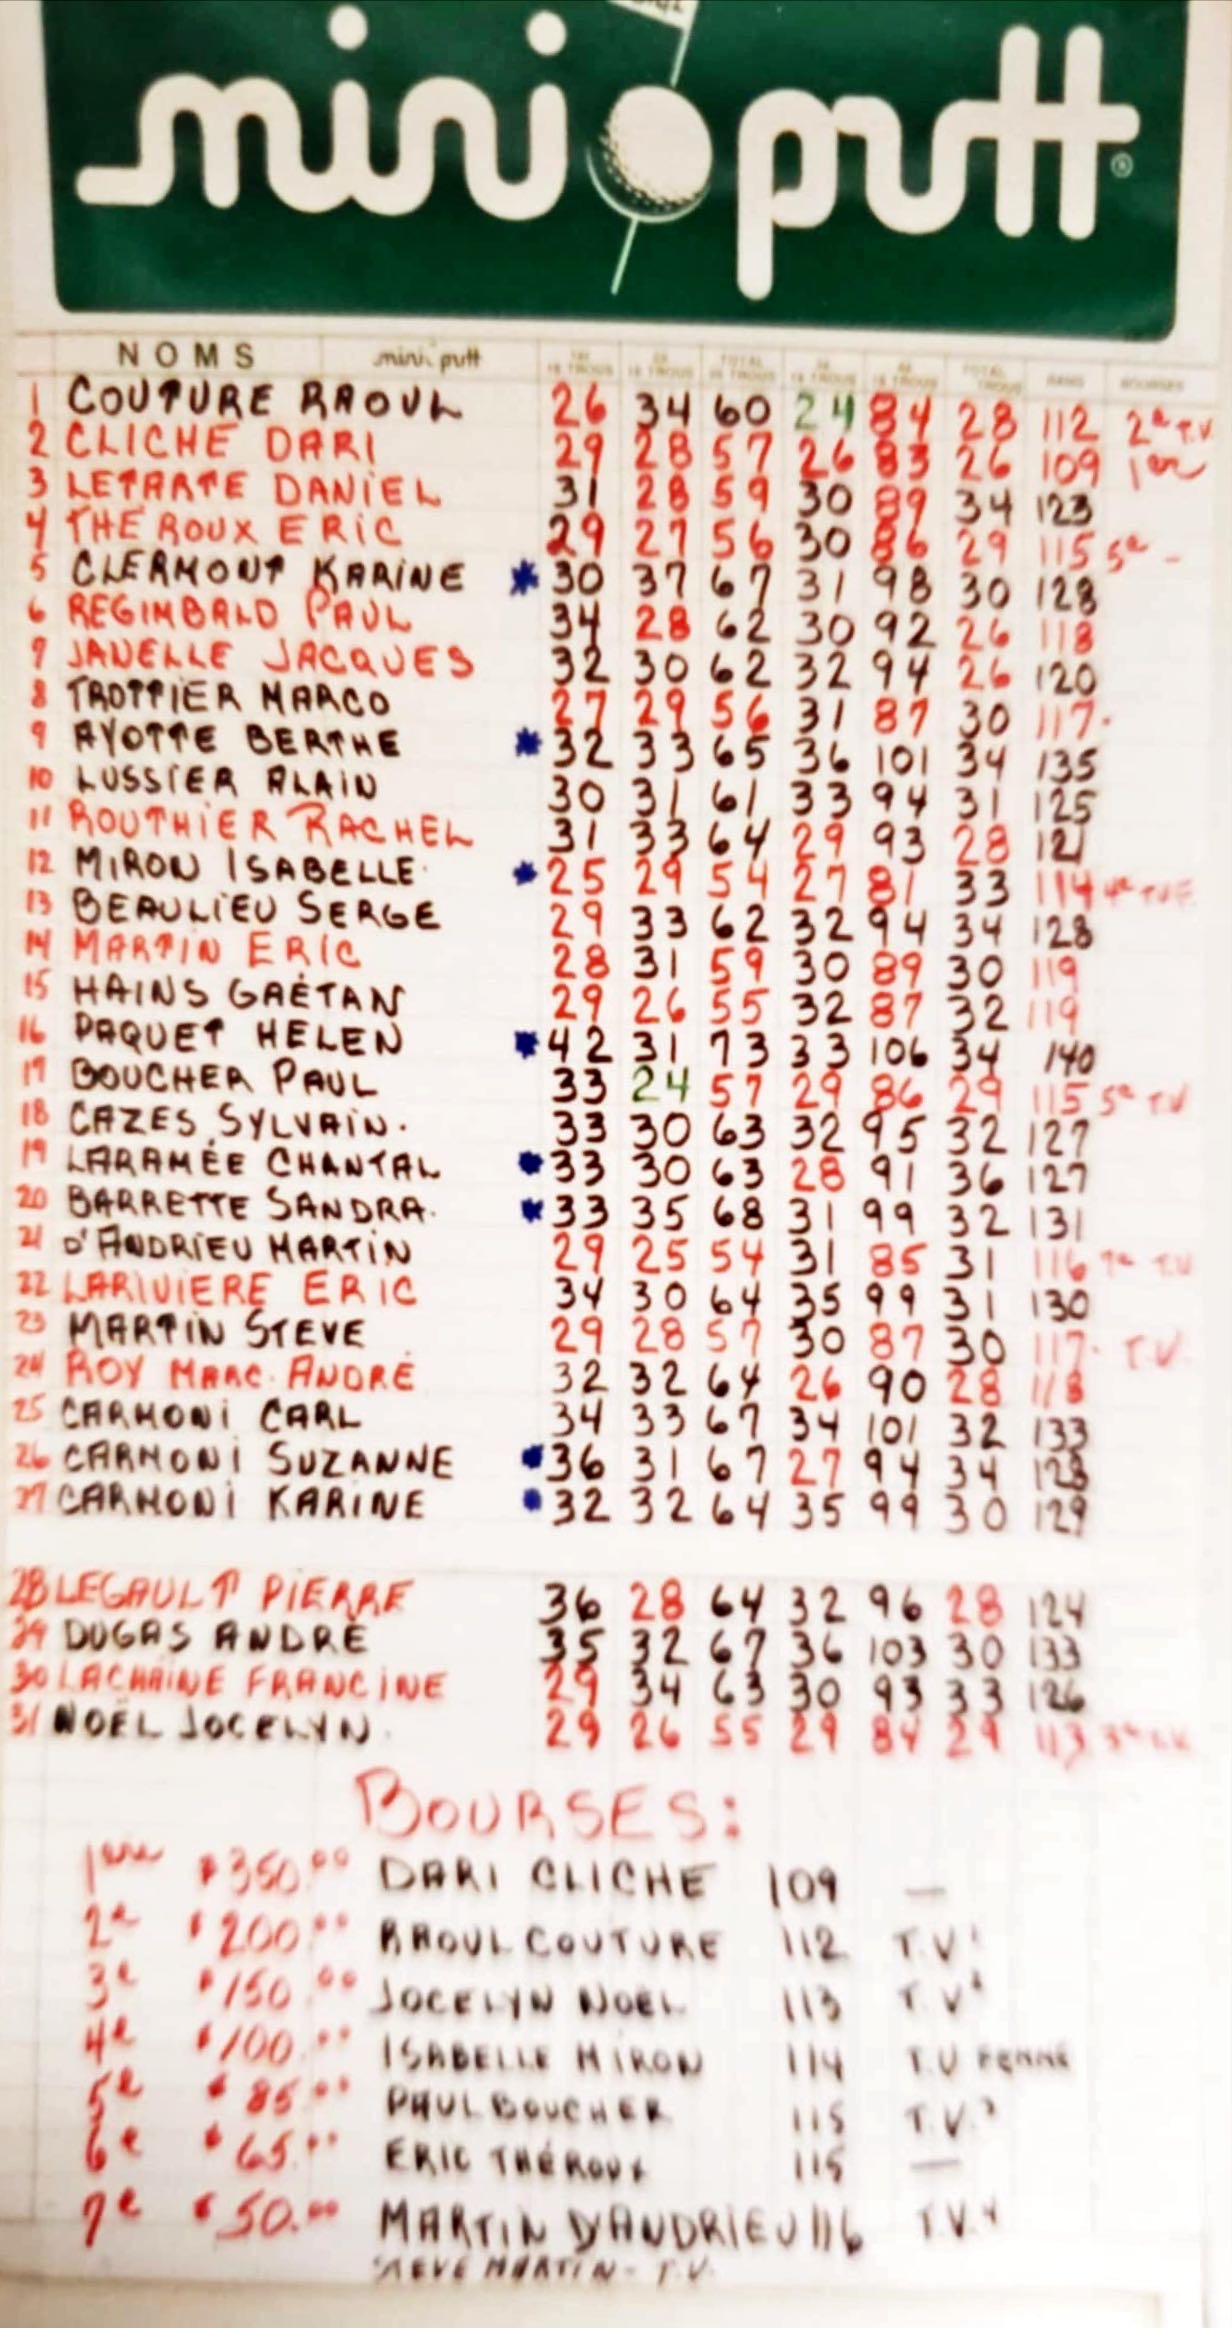 mini putt ®
NOMS mini putt 18 TROUS 18 TROUS TOTAL TROUS 18 TROUS 18 TROUS TOTAL TROUS RANG BOURSES
1 COUTURE RAOUL 26 34 60 24 84 28 112 2e T.V
2 CLICHE DARI 29 28 57 26 83 26 109 1er
3 LETARTE DANIEL 31 28 59 30 89 34 123
4 THEROUX ERIC 29 27 56 30 86 29 115 5e -
5 CLERMONT KARINE * 30 37 67 31 98 30 128
6 REGIMBALD PAUL 34 28 62 30 92 26 118
7 JANELLE JACQUES 32 30 62 32 94 26 120
8 TROTTIER MARCO 27 29 56 31 87 30 117.
9 AYOTTE BERTHE * 32 33 65 36 101 34 135
10 LUSSIER ALAIN 30 31 61 33 94 31 125
11 ROUTHIER RACHEL 31 33 64 29 93 28 121
12 MIRON ISABELLE * 25 29 54 27 81 33 114 4e
13 BEAULIEU SERGE 29 33 62 32 94 34 128
14 MARTIN ERIC 28 31 59 30 89 30 119
15 HAINS GAÉTAN 29 26 55 32 87 32 119
16 PAQUET HELEN * 42 31 73 33 106 34 140
17 BOUCHER PAUL 33 24 57 29 86 29 115 5e T.V
18 CAZES SYLVAIN. 33 30 63 32 95 32 127
19 LARAMÉE CHANTAL * 33 30 63 28 91 36 127
20 BARRETTE SANDRA. * 33 35 68 31 99 32 131
21 D'ANDRIEU MARTIN 29 25 54 31 85 31 116 7e T.V
22 LARIVIERE ERIC 34 30 64 35 99 31 130
23 MARTIN STEVE 29 28 57 30 87 30 117. T.V.
24 ROY MARC-ANDRÉ 32 32 64 26 90 28 118
25 CARMONI CARL 34 33 67 34 101 32 133
26 CARMONI SUZANNE * 36 31 67 27 94 34 128
27 CARMONI KARINE * 32 32 64 35 99 30 129
28 LEGAULT PIERRE 36 28 64 32 96 28 124
29 DUGAS ANDRÉ 35 32 67 36 103 30 133
30 LACHAINE FRANCINE 29 34 63 30 93 33 126
31 NOËL JOCELYN. 29 26 55 29 84 29 113 3e
BOURSES:
1ère $350.00 DARI CLICHE 109 —
2e $200.00 RAOUL COUTURE 112 T.V1
3e $150.00 JOCELYN NOËL 113 T.V2
4e $100.00 ISABELLE MIRON 114 T.V FEMME
5e $85.00 PAUL BOUCHER 115 T.V.3
6e $65.00 ERIC THÉROUX 115 —
7e $50.00 MARTIN D'ANDRIEU 116 T.V.4
STEVE MARTIN - T.V.